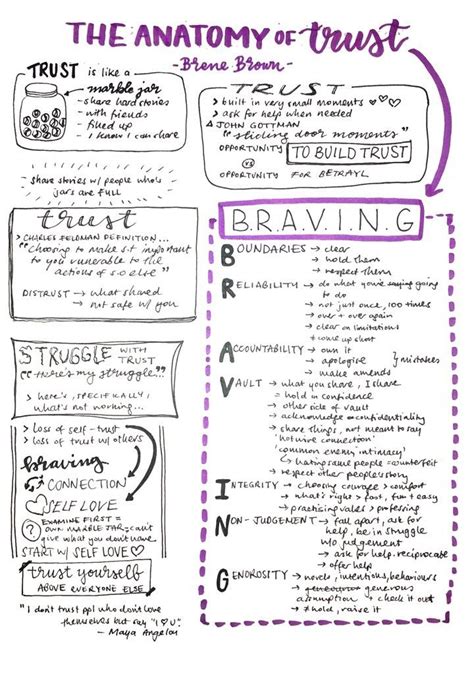 THE ANATOMY OF trust
- Brene Brown -
TRUST is like a
marble jar
- share hard stories
- with friends
filled up
- I know I can share
share stories w/ people who's
jars are FULL
TRUST
> built in very small moments
> ask for help when needed
JOHN GOTTMAN
"sliding door moments"
OPPORTUNITY TO BUILD TRUST
VS
OPPORTUNITY FOR BETRAYL
trust
> CHARLES FELDMAN DEFINITION...
"Choosing to make s.t important
to you vunerable to the
actions of s.o else"
DISTRUST → what shared
→ not safe w/ you
STRUGGLE WITH
TRUST
"here's my struggle..."
> here's, SPECIFICALLY,
what's not working...
> loss of self-trust
> loss of trust w/ others
braving
CONNECTION
SELF LOVE
? EXAMINE FIRST =
OWN MARBLE JAR = can't
give what you don't have
START W/ SELF LOVE
trust yourself
ABOVE EVERYONE ELSE
"I don't trust ppl who don't love
themselves but say "I ♡ U"
- Maya Angelou
B.R.A.V.I.N.G
BOUNDARIES → clear
→ hold them
→ respect them
RELIABILITY → do what you're saying going
to do
→ not just once, 100 times
→ over + over again
→ clear on limitations
+ come up short
ACCOUNTABILITY → own it
→ apologise } mistakes
→ make amends
VAULT → what you share, I share
= hold in confidence
→ other side of vault
→ acknowledge confidentiality
→ share things, not meant to say
'hotwire connection'
'common enemy intimacy'
↳ hating same people = counterfeit
→ respect other people's story
INTEGRITY → choosing courage > comfort
→ what's right > fast, fun + easy
→ practicing values > professing
NON-JUDGEMENT → fall apart, ask for
help, be in struggle
w/o judgement
→ ask for help. reciprocate
→ offer help
GENOROSITY → intentions, behaviours
→ generous
assumption + check it out
→ ≠ hold, raise it